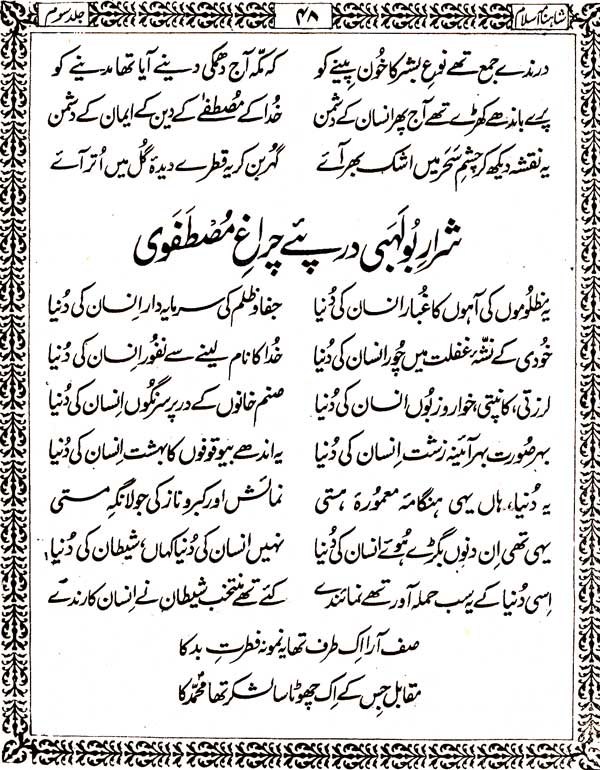 شاہنامۂ اسلام ۴۸ جلد سوم
درندے جمع تھے نوعِ بشر کا خُون پینے کو کہ مکّہ آج دھمکی دینے آیا تھا مدینے کو
پرے باندھے کھڑے تھے آج پھر انسان کے دشمن خُدا کے مُصطفےٰ کے دین کے ایمان کے دشمن
یہ نقشہ دیکھ کر چشمِ سَحَر میں اشک بھر آئے گہر بن کر یہ قطرے دیدۂ گُل میں اُتر آئے
شرارِ بُولہبی درپئے چراغِ مُصْطَفَوی
یہ مظلوموں کی آہوں کا غُبار انسان کی دُنیا جفا و ظلم کی سرمایہ دار اِنسان کی دُنیا
خُودی کے نشّہ غفلت میں چُور انسان کی دُنیا خُدا کا نام لینے سے نفُور اِنسان کی دُنیا
لرزتی، کانپتی، خوار و زبُوں انسان کی دُنیا صنم خانوں کے در پر سرنگُوں اِنسان کی دُنیا
بہر صُورت بہر آئینہ زشت اِنسان کی دُنیا یہ اندھے بیوقوفوں کا بہشت اِنسان کی دُنیا
یہ دُنیا، ہاں یہی ہنگامۂ معمورۂ ہستی نمائش اور کبر و ناز کی جولانگہِ مستی
یہی تھی اِن دنوں بگڑے ہُوئے انسان کی دُنیا نہیں انسان کی دُنیا کہاں، شیطان کی دُنیا
اِسی دُنیا کے یہ سب حملہ آور تھے نمائندے کئے تھے منتخب شیطان نے اِنسان کارندے
صف آرا اِک طرف تھا یہ نمونہ فطرتِ بد کا
مقابل جس کے اِک چھوٹا سا لشکر تھا محمّدؐ کا